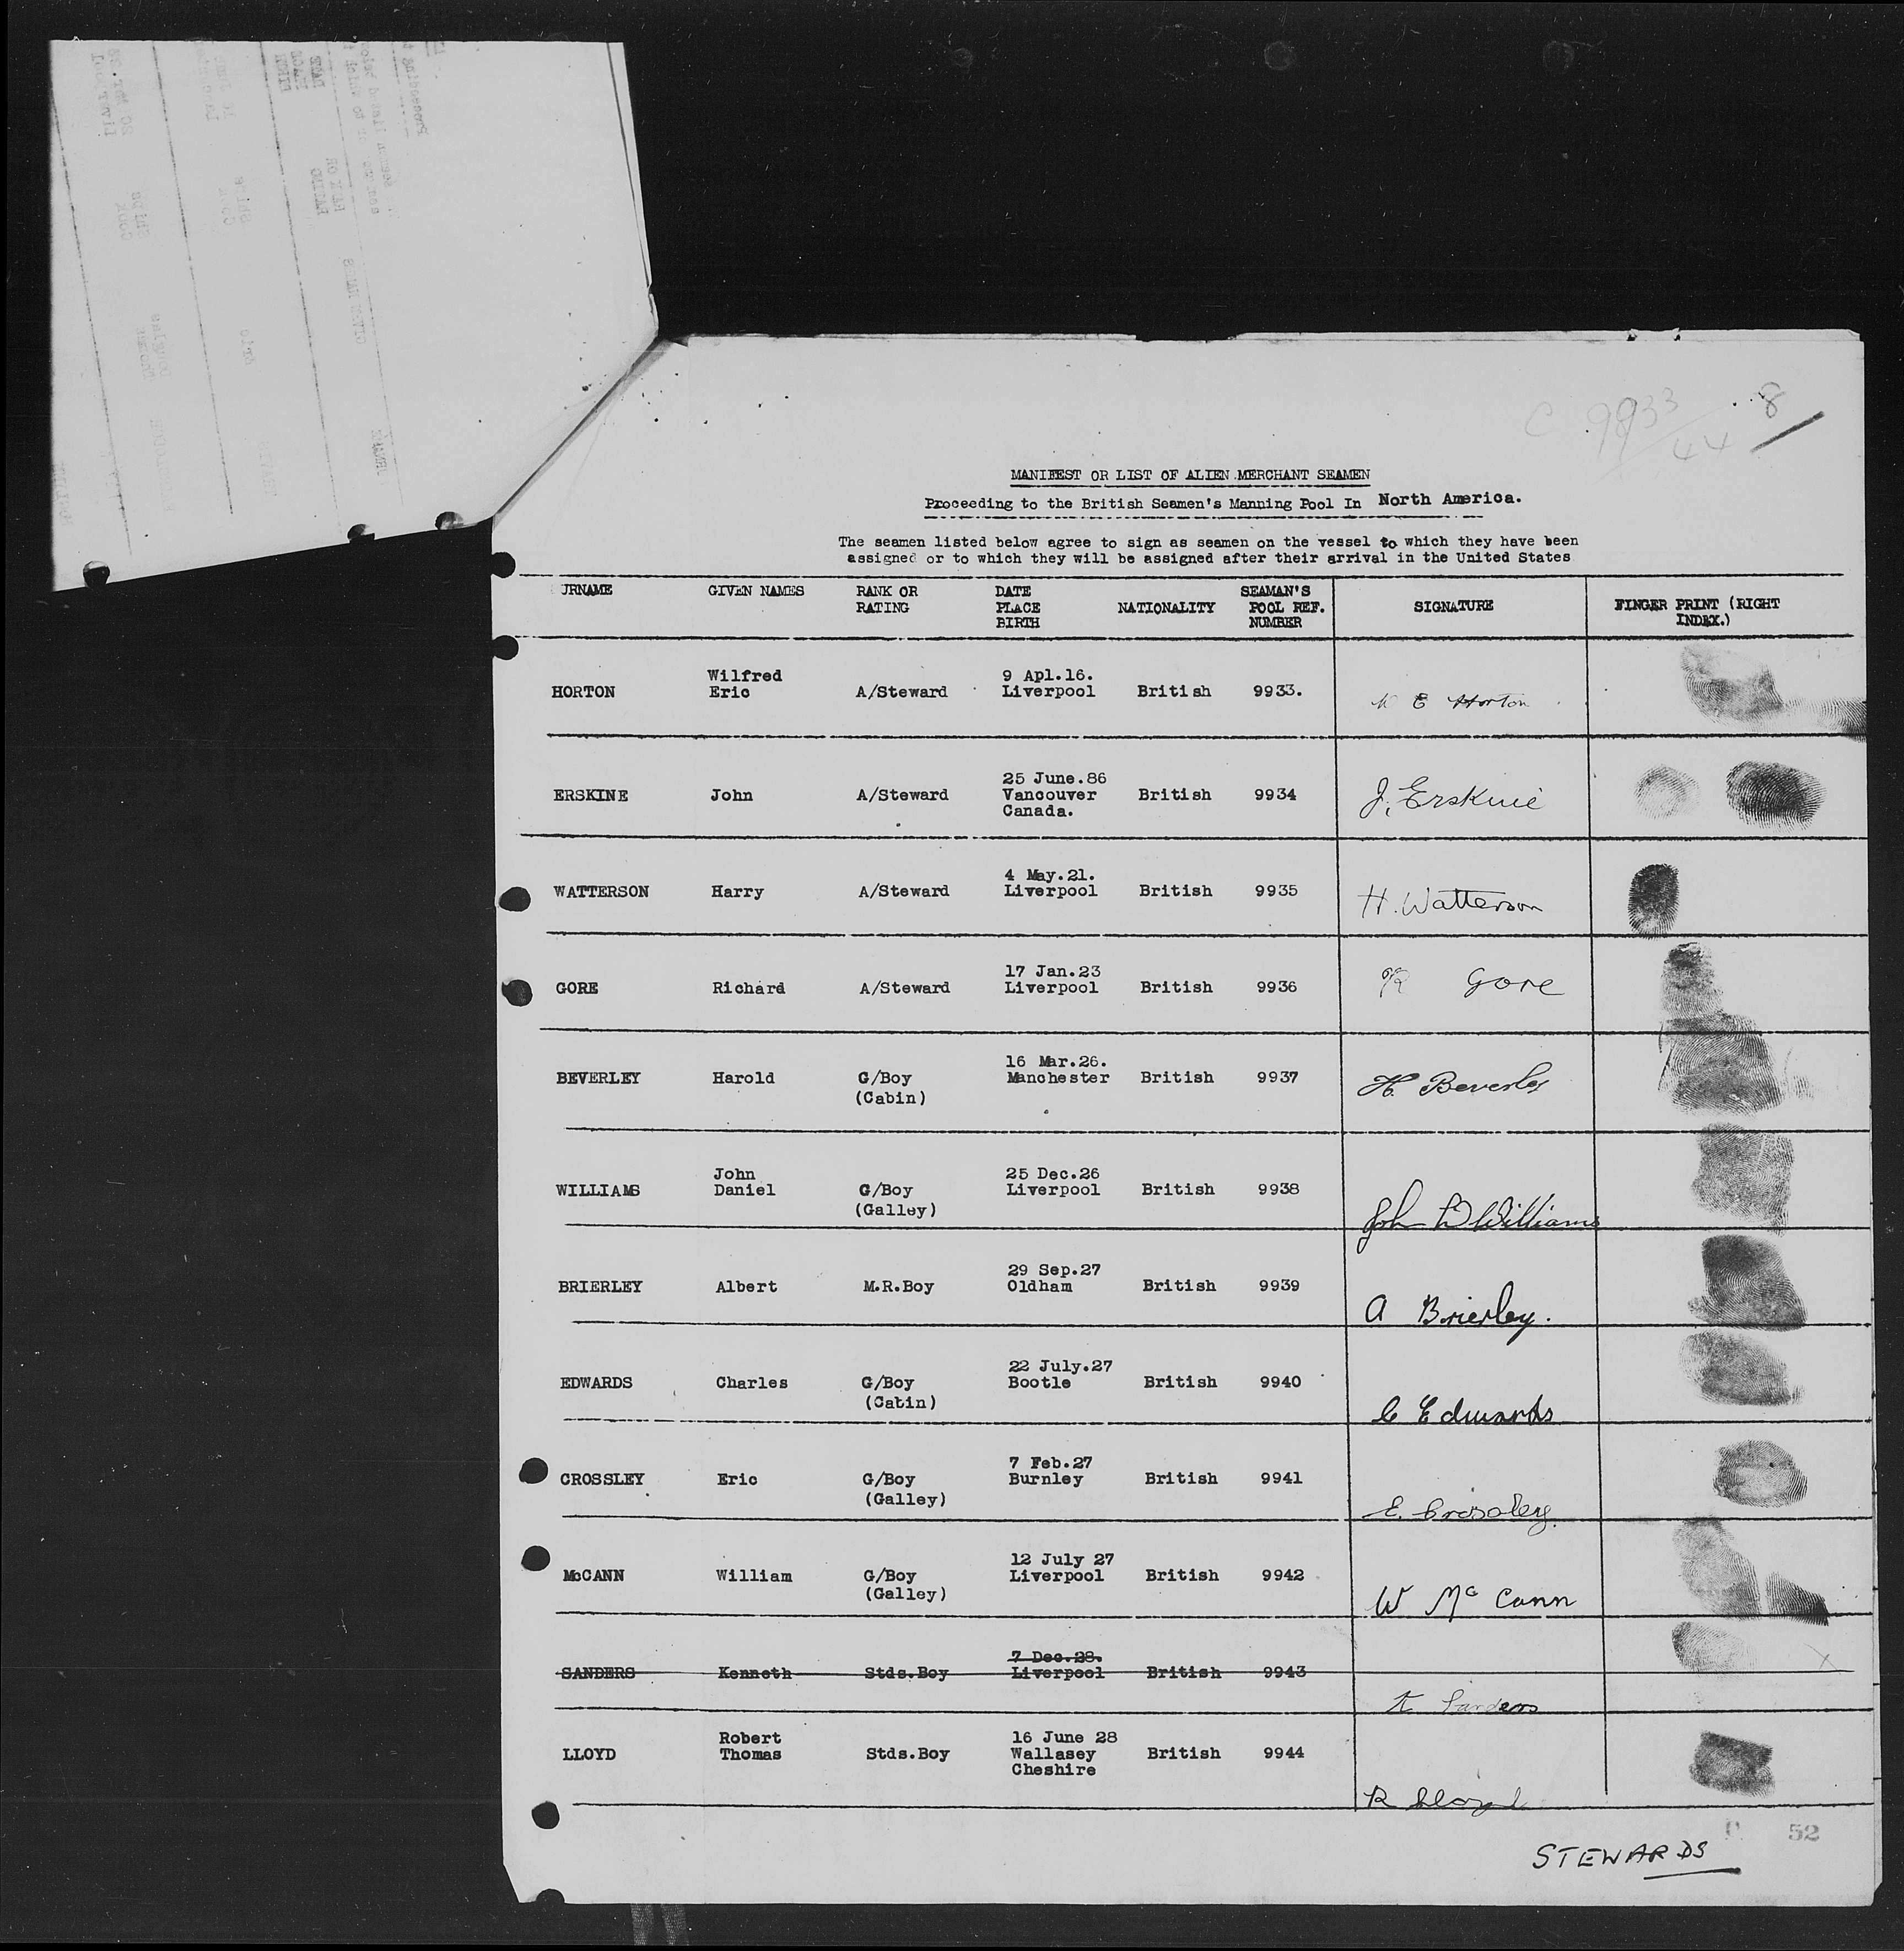 C 9933/44
8
MANIFEST OR LIST OF ALIEN MERCHANT SEAMEN
Proceeding to the British Seamen's Manning Pool In North America.
The seamen listed below agree to sign as seamen on the vessel to which they have been
assigned or to which they will be assigned after their arrival in the United States
URNAME GIVEN NAMES RANK OR RATING DATE PLACE BIRTH NATIONALITY SEAMAN'S POOL REF. NUMBER SIGNATURE FINGER PRINT (RIGHT INDEX.)
HORTON Wilfred Eric A/Steward 9 Apl.16. Liverpool British 9933. W E Horton
ERSKINE John A/Steward 25 June.86 Vancouver Canada. British 9934 J. Erskine
WATTERSON Harry A/Steward 4 May.21. Liverpool British 9935 H. Watterson
GORE Richard A/Steward 17 Jan.23 Liverpool British 9936 R Gore
BEVERLEY Harold G/Boy (Cabin) 16 Mar.26. Manchester British 9937 H. Beverley
WILLIAMS John Daniel G/Boy (Galley) 25 Dec.26 Liverpool British 9938 John D Williams
BRIERLEY Albert M.R.Boy 29 Sep.27 Oldham British 9939 A Brierley.
EDWARDS Charles G/Boy (Cabin) 22 July.27 Bootle British 9940 C Edwards
CROSSLEY Eric G/Boy (Galley) 7 Feb.27 Burnley British 9941 E. Crossley.
McCANN William G/Boy (Galley) 12 July 27 Liverpool British 9942 W McCann
SANDERS Kenneth Stds.Boy 7 Dec.28. Liverpool British 9943 K Sanders
LLOYD Robert Thomas Stds.Boy 16 June 28 Wallasey Cheshire British 9944 R Lloyd
52
STEWARDS